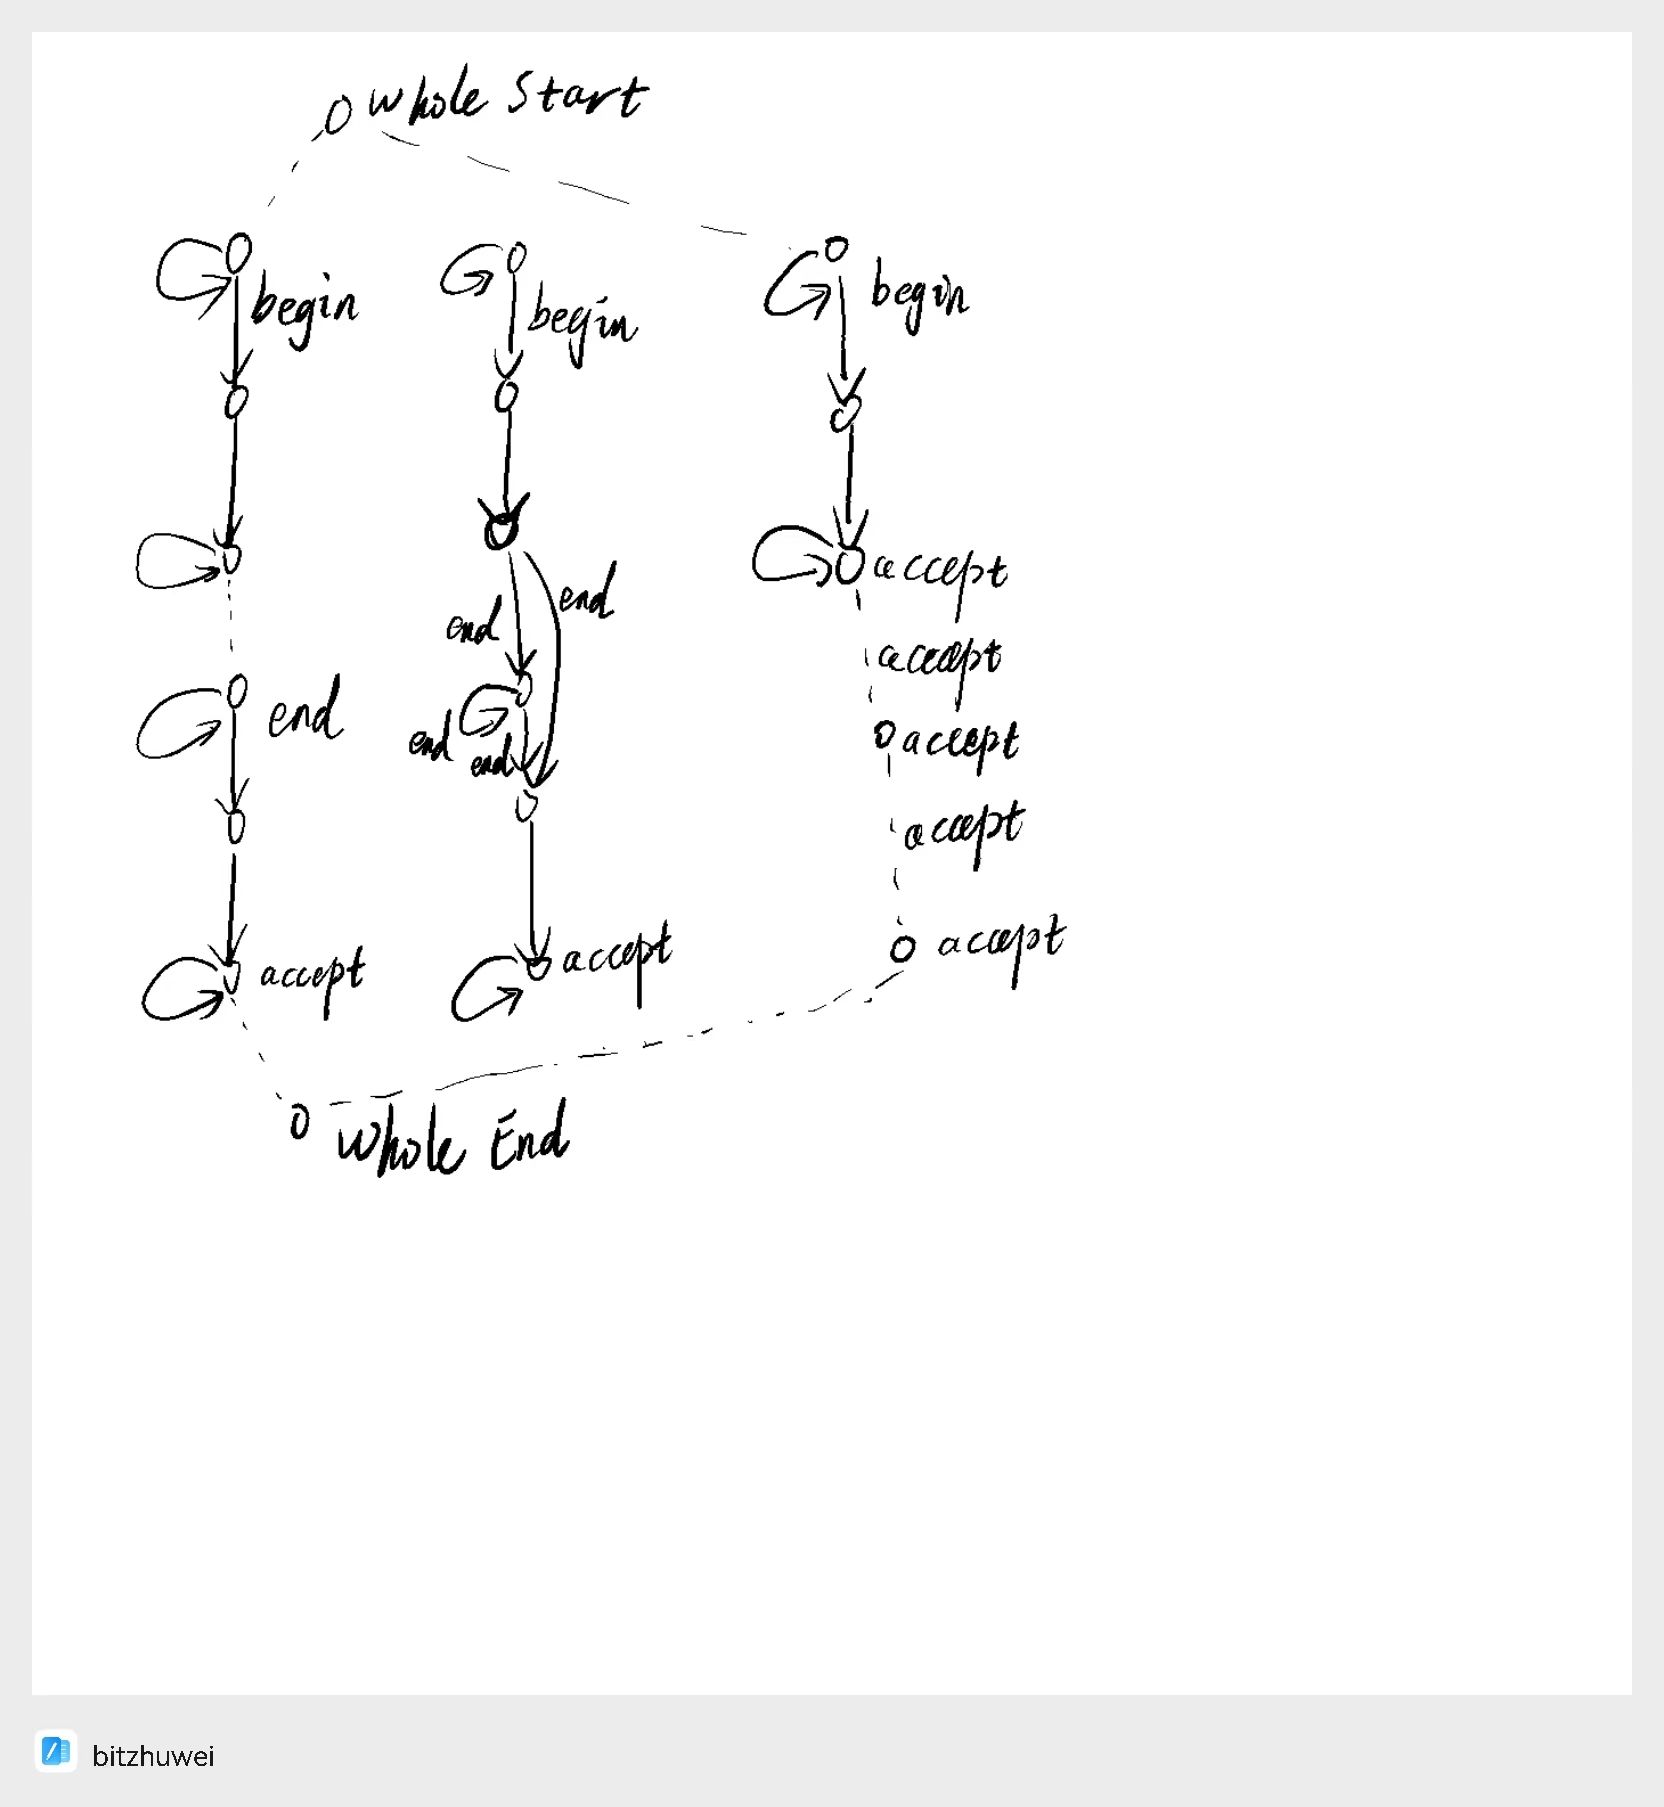 whole Start
begin
begin
begin
end
end
accept
accept
end
end
end
accept
accept
accept
accept
accept
accept
Whole End
bitzhuwei